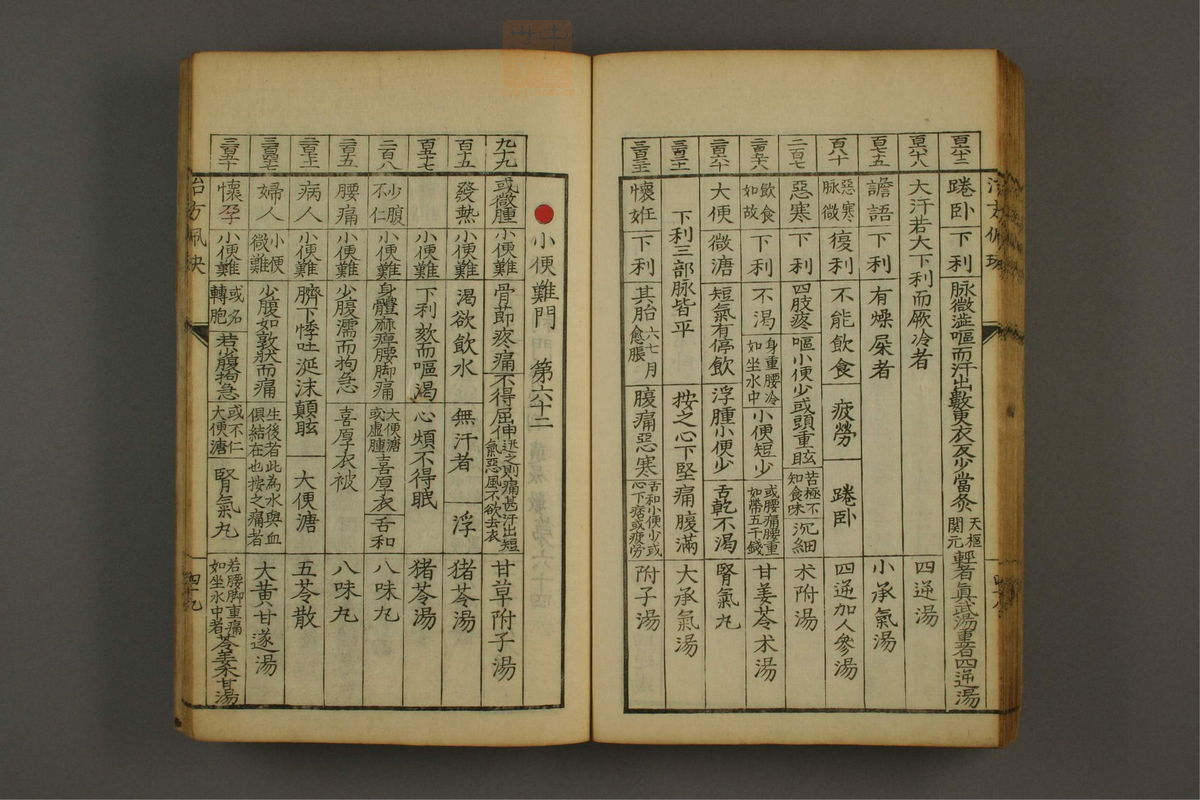 百六十二 踡卧 下利 脉微澁嘔而汗出數更衣反少當灸 天樞 関元 輕者真武湯重者四逆湯
百六十八 大汗若大下利而厥冷者 四逆湯
百七十五 譫語 下利 有燥屎者 小承氣湯
百八十 惡寒脉微 復利 不能飲食 疲勞 踡卧 四逆加人參湯
二百七 惡寒 下利 四肢疼 嘔小便少或頭重眩 苦極不知食味 沉細 术附湯
飲食如故 下利 不渴 身重腰冷如坐水中 小便短少 或腰痛腰重如帶五千錢 甘姜苓术湯
大便 微溏 短氣有停飲 浮腫小便少 舌乾不渴 腎氣丸
下利三部脉皆平 按之心下堅痛腹滿 大承氣湯
懷妊 下利 其胎 六七月愈脹 腹痛惡寒 舌和小便少或心下痞或疲勞 附子湯
治方佩玦
●小便難門 第六十二
九十九 或微腫 小便難 骨節疼痛 不得屈伸 近之則痛甚汗出短氣惡風不欲去衣 甘草附子湯
百十五 發熱 小便難 渴欲飲水 無汗者 浮 猪苓湯
百五十七 小便難 下利欬而嘔渴 心煩不得眠 猪苓湯
二百八 少腹不仁 小便難 身體麻痺腰脚痛 大便溏或虚腫 喜厚衣 舌和 八味丸
腰痛 小便難 少腹濡而拘急 喜厚衣被 八味丸
病人 小便難 臍下悸吐涎沫 顛眩 大便溏 五苓散
婦人 小便微難 少腹如敦狀而痛 生後者此為水與血俱結在也按之痛者 大黄甘遂湯
懷孕 小便難 或名轉胞 若少腹拘急 或不仁大便溏 腎氣丸 若腰脚重痛如坐水中者 苓姜术甘湯
治方佩玦 四十九